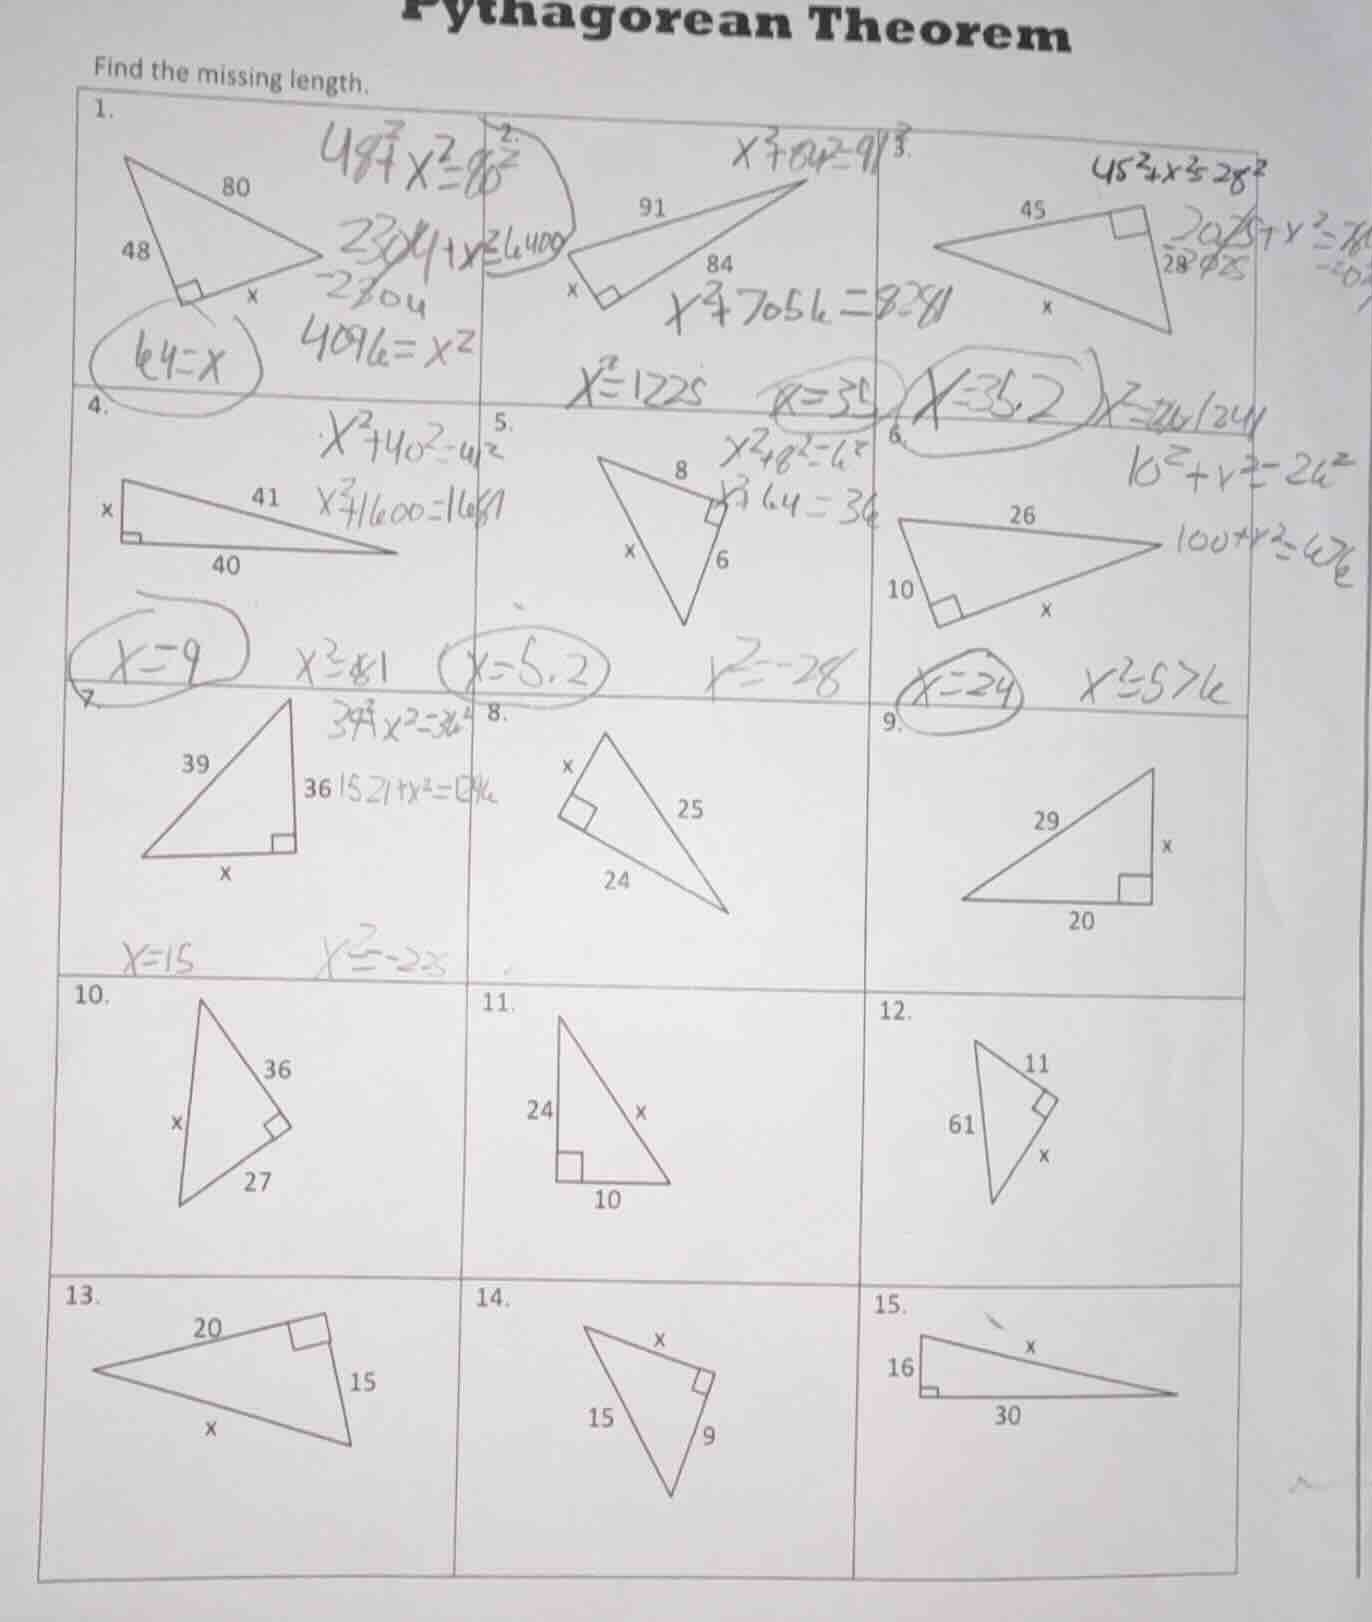 Pythagorean Theorem
Find the missing length.
1.
80
48
x
48²+x²=80²
2304+x²=6400
-2304
4096=x²
64=x
2.
91
84
x
x²+84²=91²
x²+7056=8281
x²=1225
x=35
3.
45
28
x
45²+x²=28²
2025+x²=
-2025
x=35.2
4.
x
41
40
x²+40²=41²
x²+1600=1681
x=9
x²=81
5.
8
x
6
x²+8²=6²
x²+64=36
x=5.2
x²=-28
6.
26
10
x
10²+x²=26²
100+x²=676
x=24
x²=576
7.
39
36
x
39²+x²=36²
1521+x²=1296
x=15
x²=-225
8.
x
25
24
9.
29
x
20
10.
36
x
27
11.
24
x
10
12.
11
61
x
13.
20
15
x
14.
x
15
9
15.
x
16
30